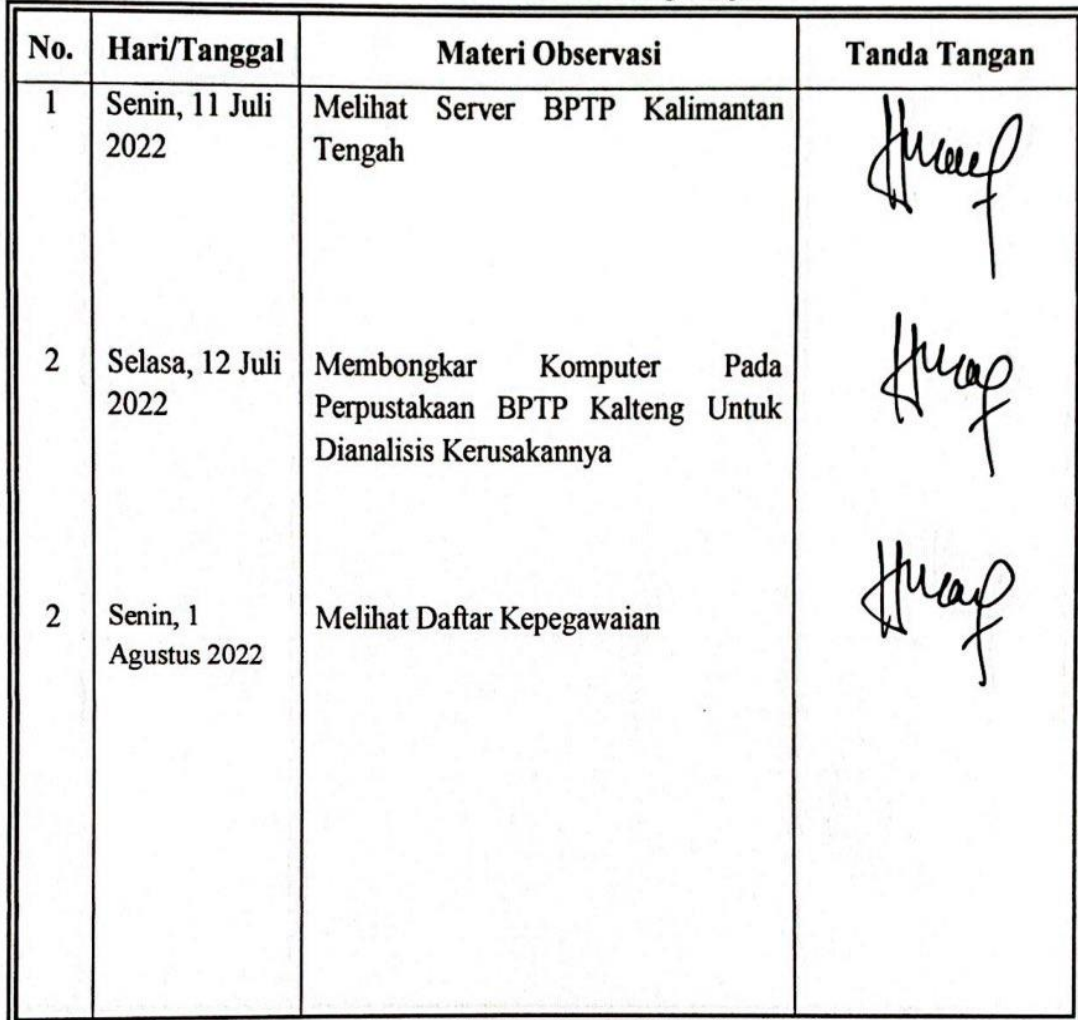 No. Hari/Tanggal Materi Observasi Tanda Tangan
1 Senin, 11 Juli Melihat Server BPTP Kalimantan
2022 Tengah
2 Selasa, 12 Juli Membongkar Komputer Pada
2022 Perpustakaan BPTP Kalteng Untuk
Dianalisis Kerusakannya
2 Senin, 1 Melihat Daftar Kepegawaian
Agustus 2022